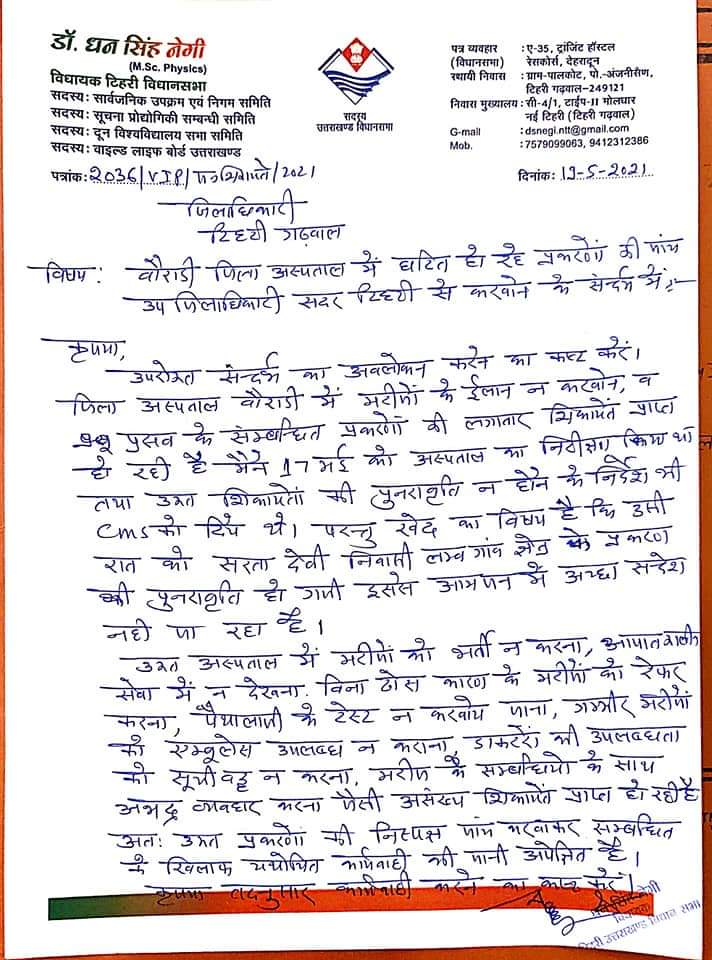 डॉ. धन सिंह नेगी
(M.Sc. Physics)
विधायक टिहरी विधानसभा
सदस्य: सार्वजनिक उपक्रम एवं निगम समिति
सदस्य: सूचना प्रौद्योगिकी सम्बन्धी समिति
सदस्य: दून विश्वविद्यालय सभा समिति
सदस्य: वाइल्ड लाइफ बोर्ड उत्तराखण्ड
सदस्य
उत्तराखण्ड विधानसभा
पत्र व्यवहार : ए-35, ट्रांजिंट हॉस्टल
(विधानसभा) रेसकोर्स, देहरादून
स्थायी निवास : ग्राम-पालकोट, पो.-अंजनीसैण,
टिहरी गढ़वाल-249121
निवास मुख्यालय : सी-4/1, टाईप-II मोलधार
नई टिहरी (टिहरी गढ़वाल)
G-mail : dsnegi.ntt@gmail.com
Mob. : 7579099063, 9412312386
पत्रांक: 2036/VIP/ /2021
दिनांक: 19-5-2021
जिलाधिकारी
टिहरी गढ़वाल
विषय : बौराडी जिला अस्पताल में घटित हो रहे प्रकरणों की जांच
उप जिलाधिकारी सदर टिहरी से करवाने के संर्न्दभ में :-
कृपया,
उपरोक्त संर्न्दभ का अवलोकन करने का कष्ट करें।
जिला अस्पताल बौराडी में मरीजों के ईलाज न करवाने, व
प्रसव के सम्बन्धित प्रकरणों की लगातार शिकायतें प्राप्त
हो रही है मैंने 17 मई को अस्पताल का निरीक्षण किया था
तथा उक्त शिकायतों की पुनरावृति न होने के निर्देश भी
CMS को दिये थे। परन्तु खेद का विषय है कि उसी
रात को सरता देवी निवासी लम्ब गांव क्षेत्र के प्रकरण
की पुनरावृति हो गयी इससे आमजन में अच्छा सन्देश
नही जा रहा है।
उक्त अस्पताल में मरीजों को भर्ती न करना, आपातकालीन
सेवा में न देखना, बिना ठोस कारण के मरीजों को रेफर
करना, पैथालाजी के टेस्ट न करवाये जाना, गम्भीर मरीजों
को एम्बूलेंस उपलब्ध न कराना, डाक्टरों की उपलब्धता
को सूचीवद्ध न करना, मरीज के सम्बन्धियों के साथ
अभद्र व्यवहार करना जैसी असंख्य शिकायतें प्राप्त हो रही है
अतः उक्त प्रकरणों की निस्पक्ष जांच करवाकर सम्बन्धित
के खिलाफ यथोचित कार्यवाही की जानी अपेक्षित है।
कृपया तदनुसार कार्यवाही करने का कष्ट करें।
सिंह नेगी
विधायक
टिहरी उत्तराखण्ड विधान सभा